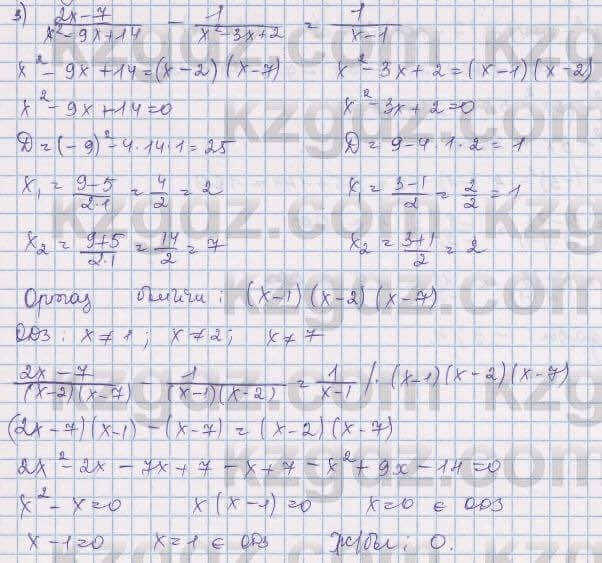 3) (2x-7)/(x²-9x+14) - 1/(x²-3x+2) = 1/(x-1)
x²-9x+14=(x-2)(x-7) x²-3x+2=(x-1)(x-2)
x²-9x+14=0 x²-3x+2=0
D=(-9)²-4·14·1=25 D=9-4·1·2=1
x₁=(9-5)/(2·1)=4/2=2 x₁=(3-1)/2=2/2=1
x₂=(9+5)/(2·1)=14/2=7 x₂=(3+1)/2=2
Ортақ бөлігі: (x-1)(x-2)(x-7)
ОДЗ: x≠1; x≠2; x≠7
(2x-7)/((x-2)(x-7)) - 1/((x-1)(x-2)) = 1/(x-1) /·(x-1)(x-2)(x-7)
(2x-7)(x-1)-(x-7)=(x-2)(x-7)
2x²-2x-7x+7-x+7-x²+9x-14=0
x²-x=0 x(x-1)=0 x=0 ∈ ОДЗ
x-1=0 x=1 ∈ ОДЗ Ж/бы: 0.
kzgdz.com